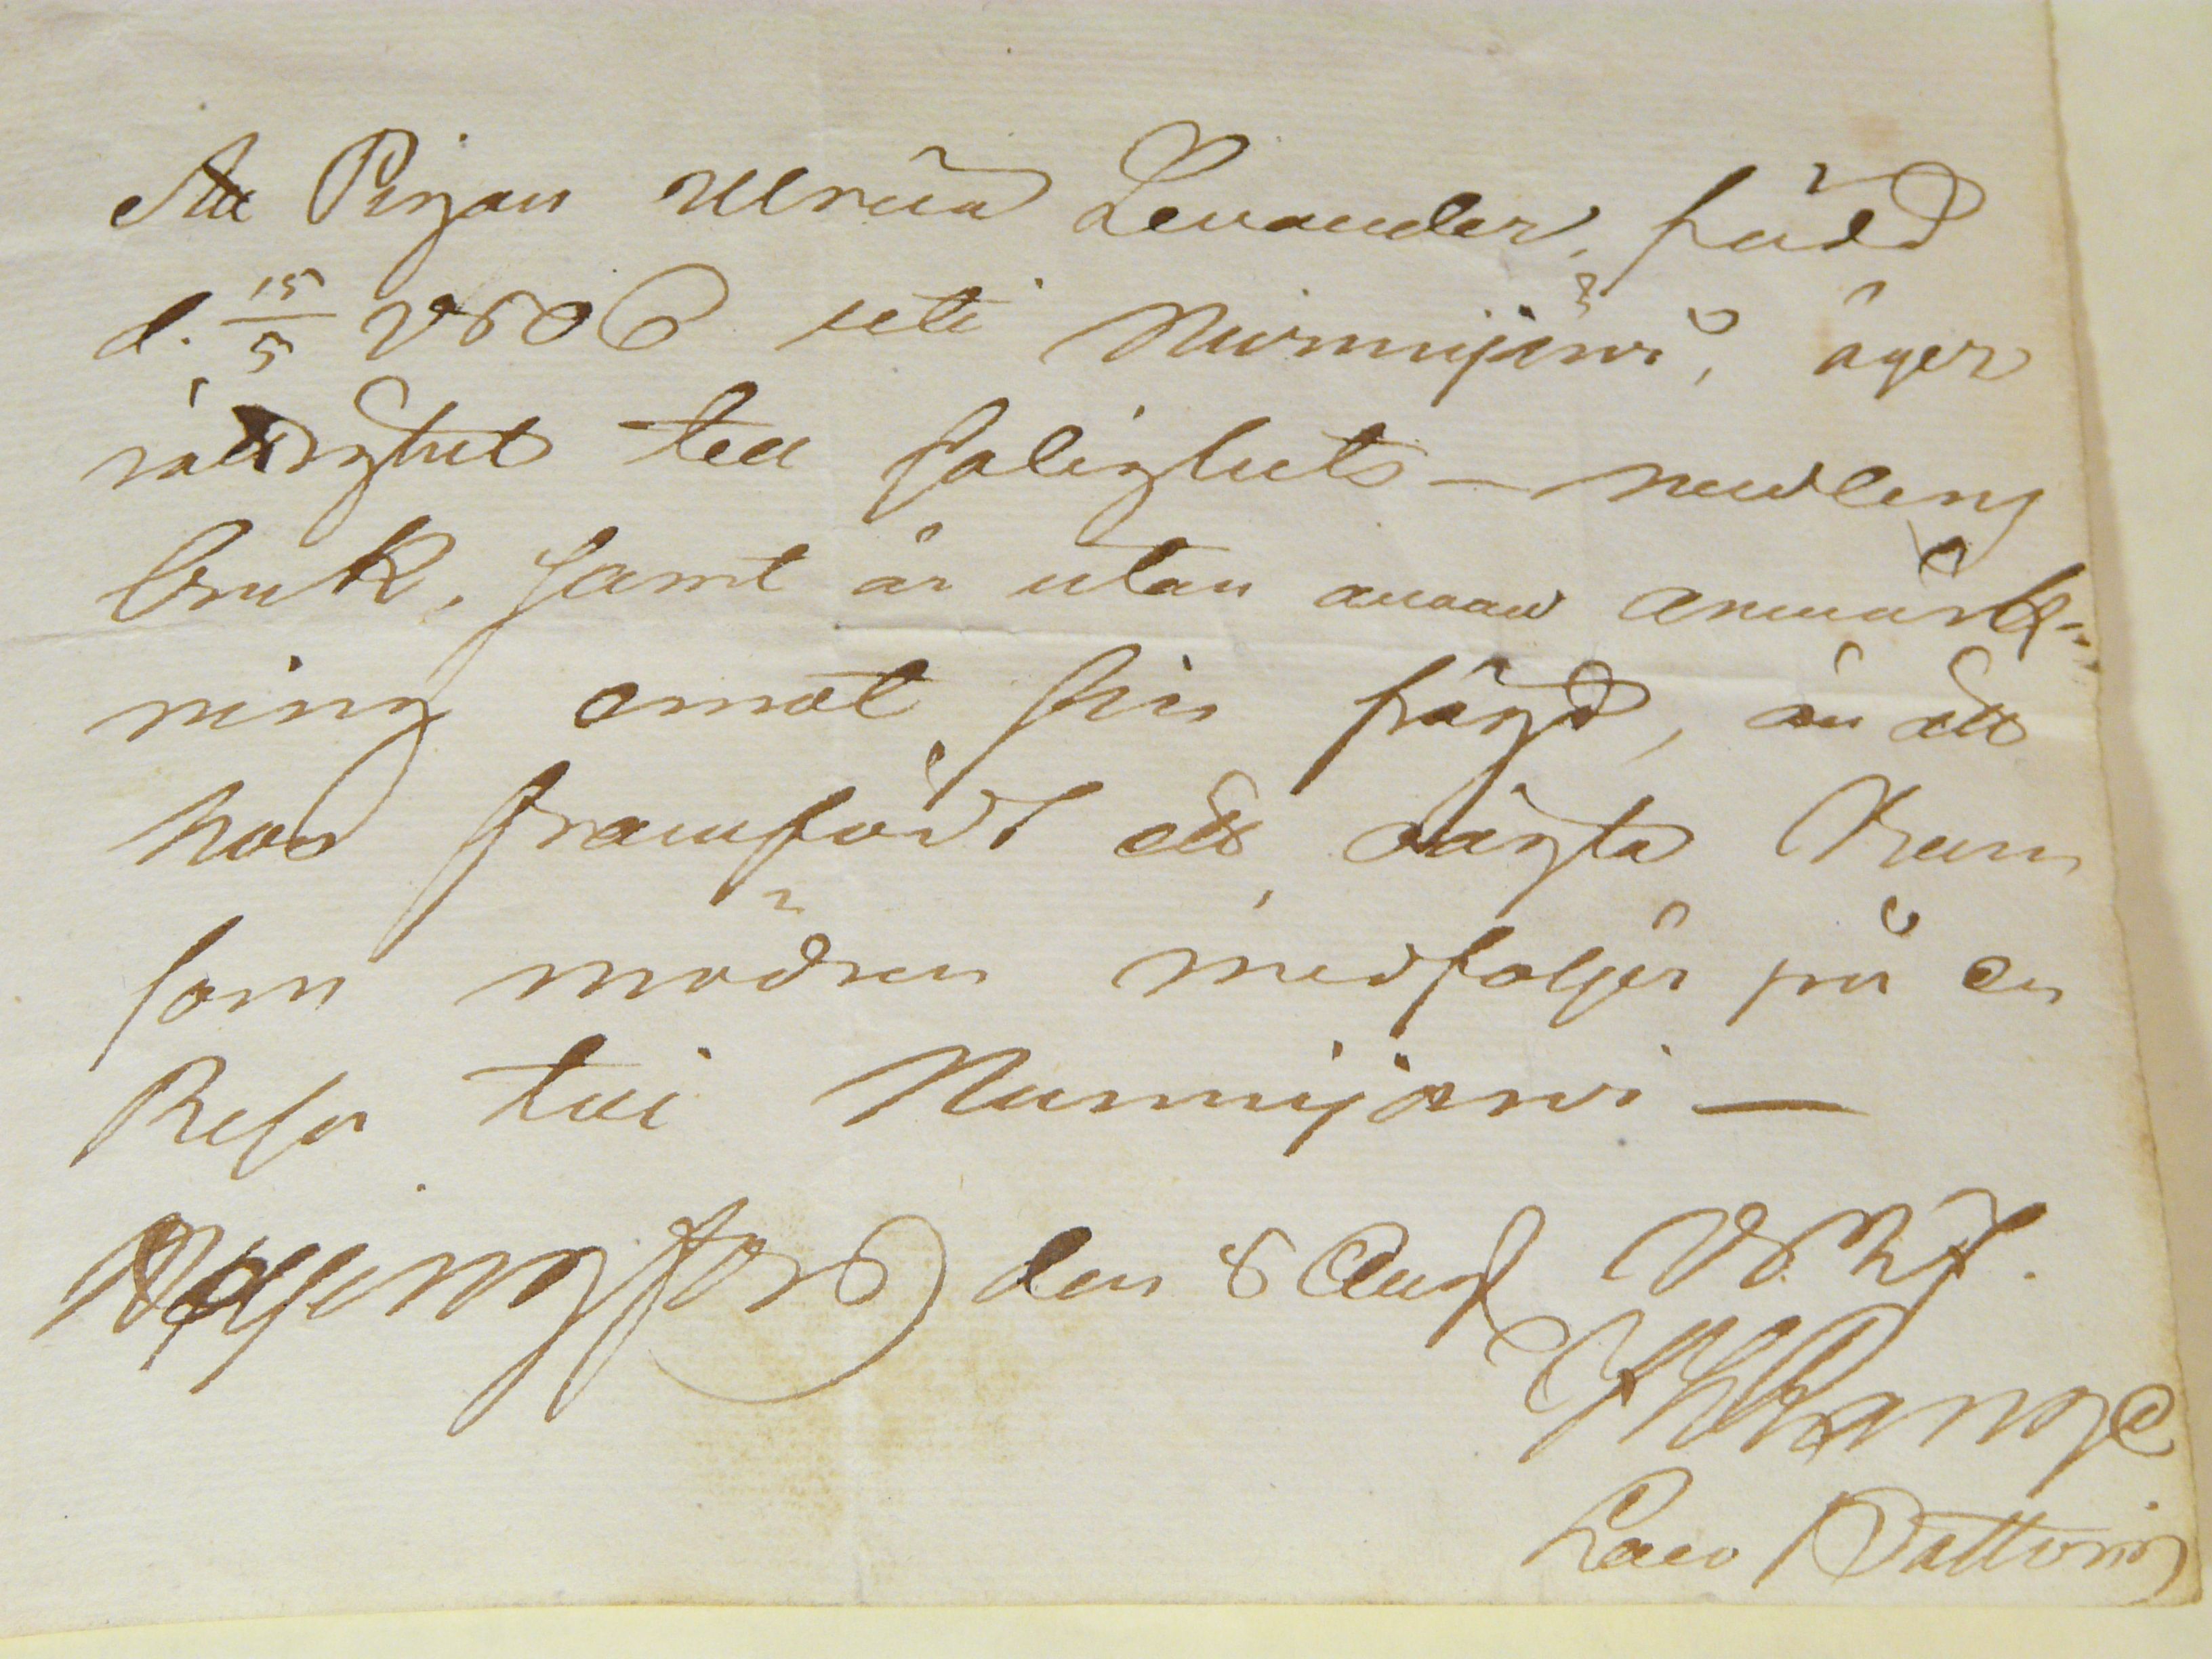 Att Pigan Ulrica Levander, född
d. 15/5 1806 uti Nurmijärvi, äger
rättighet till salighets-medlens
bruk, samt är utan annan anmärk-
ning emot sin frägd, än att
hon framfödt ett oägta Barn
som modren medföljer på en
Resa till Nurmijärvi —
Helsingfors den 8 Aug 1827.
Loco Pastoris